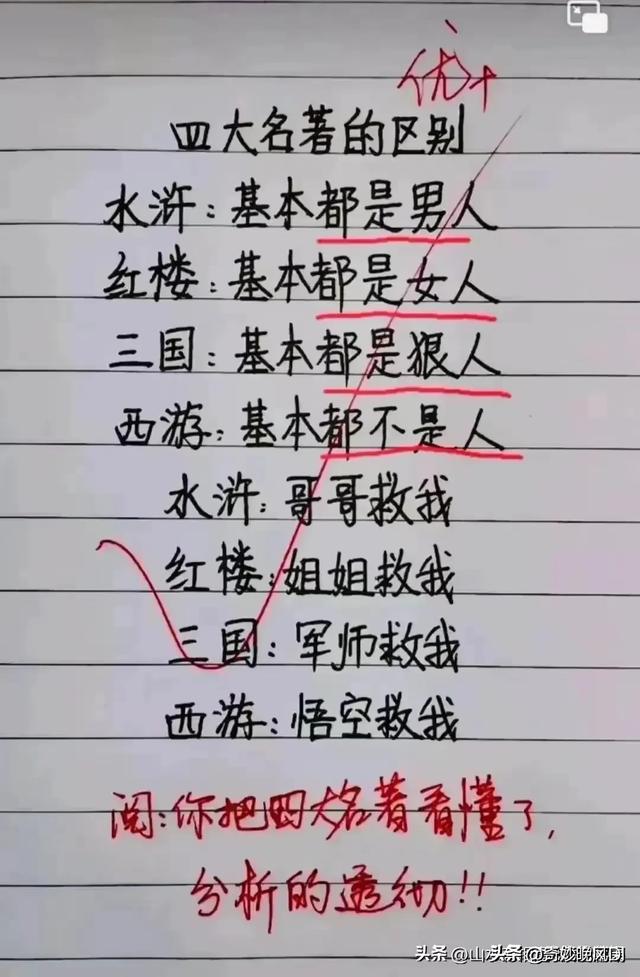 优+
四大名著的区别
水浒:基本都是男人
红楼:基本都是女人
三国:基本都是狠人
西游:基本都不是人
水浒:哥哥救我
红楼:姐姐救我
三国:军师救我
西游:悟空救我
阅:你把四大名著看懂了,
分析的透彻!!
头条 @山 头条 @奇妙晚风网